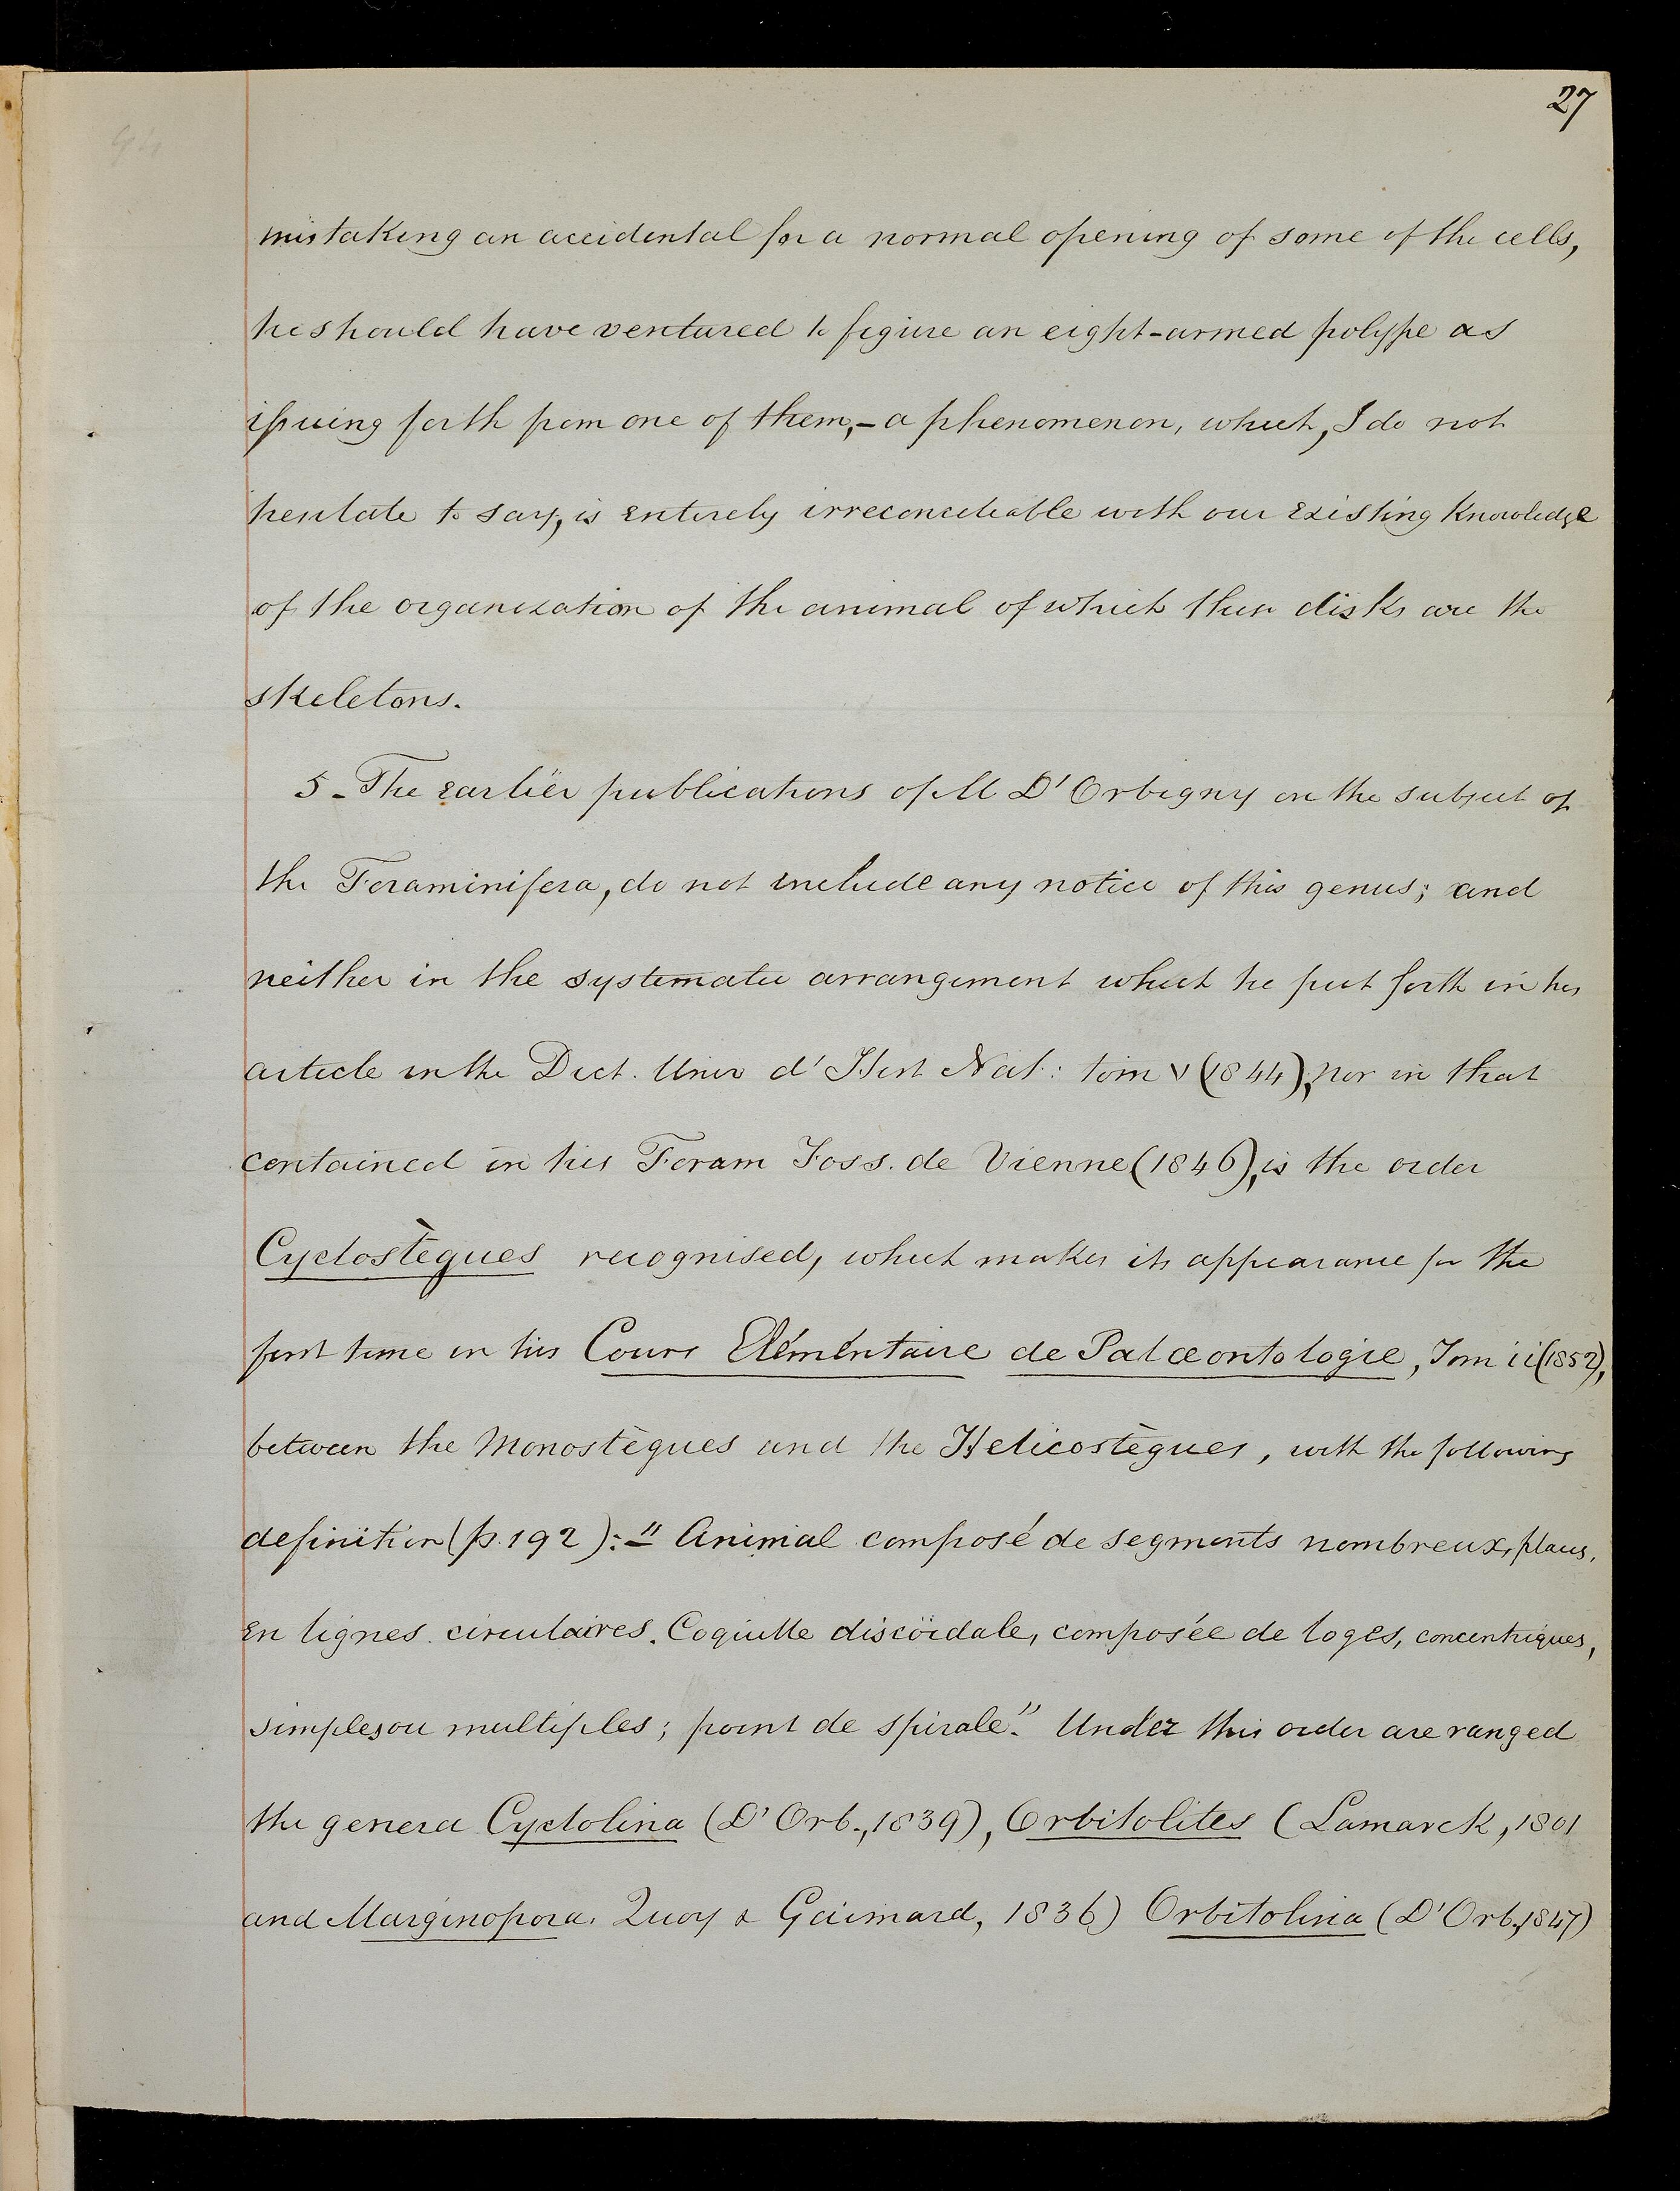 27
mistaking an accidental for a normal opening of some of the cells,
he should have ventured to figure an eight-armed polype as
issuing forth from one of them,- a phenomenon, which, I do not
hesitate to say, is entirely irreconcileable with our existing knowledge
of the organization of the animal of which these disks are the
skeletons.
5 - The earlier publications of M D'Orbigny on the subject of
the Foraminifera, do not include any notice of this genus; and
neither in the systematic arrangement which he put forth in his
article in the Dict. Univ d'Hist Nat: tom v (1844), nor in that
contained in his Foram Foss. de Vienne (1846), is the order
Cyclostègues recognised, which makes its appearance for the
first time in his Cours Elémentaire de Palæontologie, Tom ii (1852),
between the Monostègues and the Helicostègues, with the following
definition (p. 192):- "Animal composé de segments nombreux, placés,
en lignes circulaires. Coquille discöidale, composée de loges, concentriques,
simples ou multiples; point de spirale." Under this order are ranged
the genera Cyclolina (D'Orb., 1839), Orbitolites (Lamarck, 1801
and Marginopora, Quoy & Gaimard, 1836) Orbitolina (D'Orb., 1847)